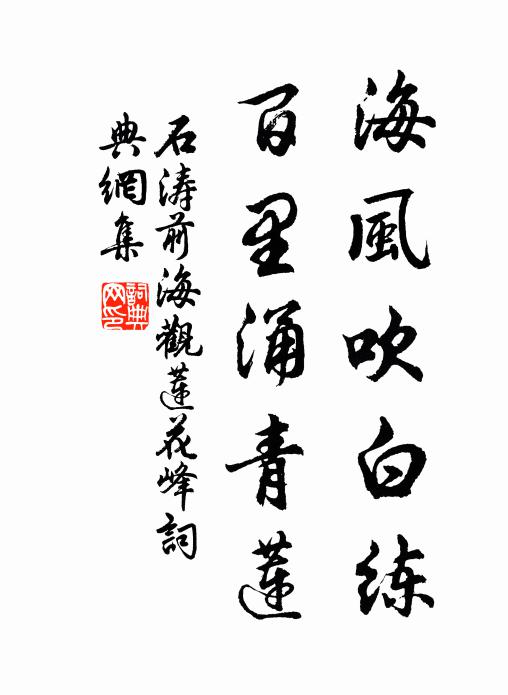 海風吹白练
百里涌青蓮
石涛前海觀蓮花峰詞
典網集
詞典
网印